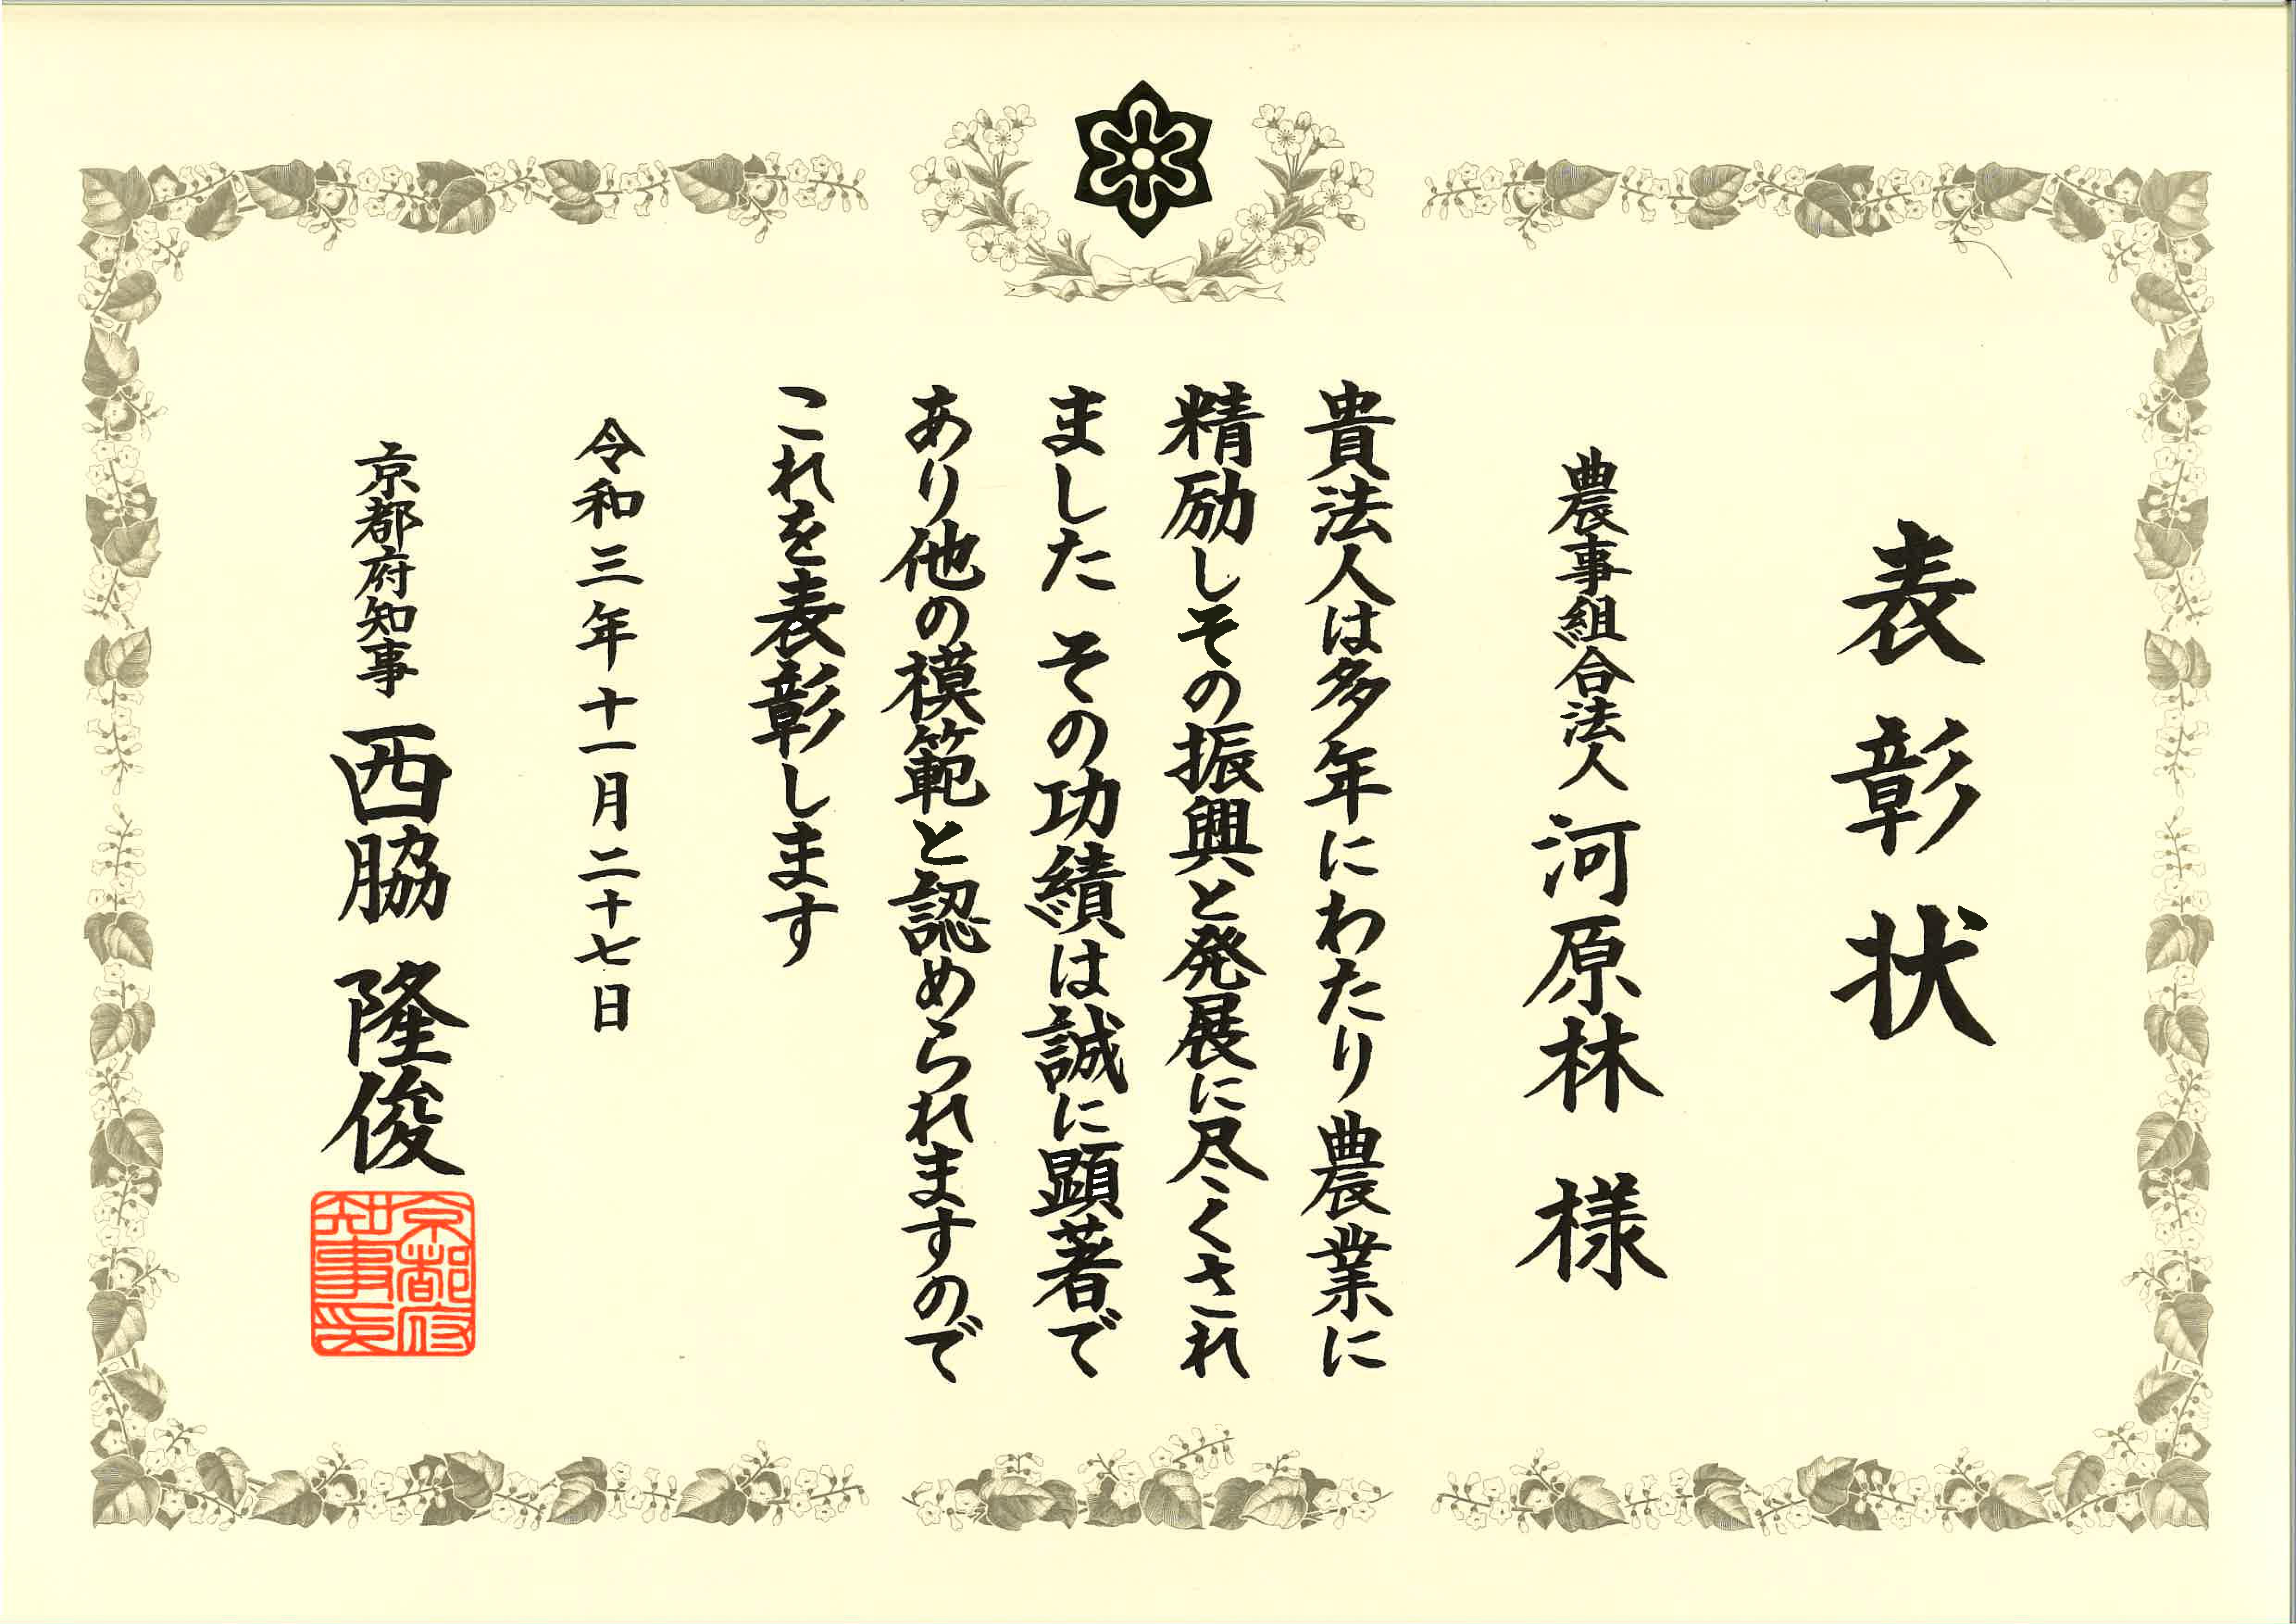 表彰状
農事組合法人 河原林 様
貴法人は多年にわたり農業に
精励しその振興と発展に尽くされ
ました その功績は誠に顕著で
あり他の模範と認められますので
これを表彰します
令和三年十一月二十七日
京都府知事 西脇 隆俊
京都府
知事印